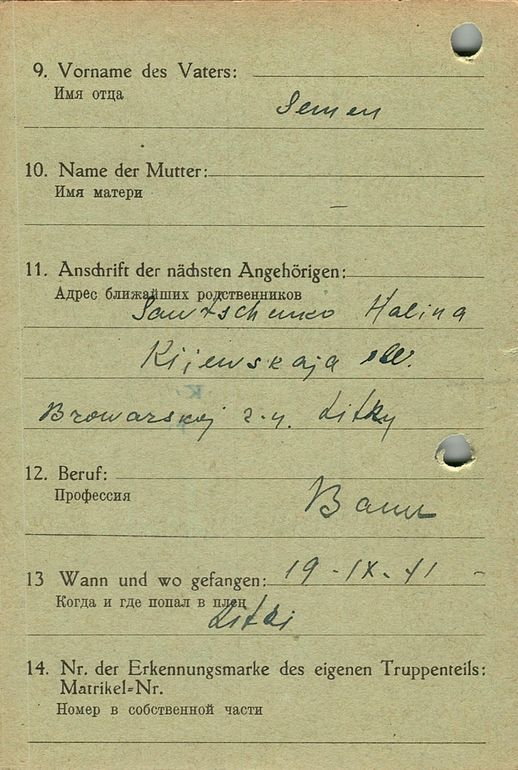 9. Vorname des Vaters:
Имя отца
Semen
10. Name der Mutter:
Имя матери
—
11. Anschrift der nächsten Angehörigen:
Адрес ближайших родственников
Halina
Kijewskaja
Browarskoj Litky
12. Beruf:
Профессия
Bauer
13 Wann und wo gefangen: 19-IX-41 -
Когда и где попал в плен
Litki
14. Nr. der Erkennungsmarke des eigenen Truppenteils:
Matrikel-Nr.
Номер в собственной части